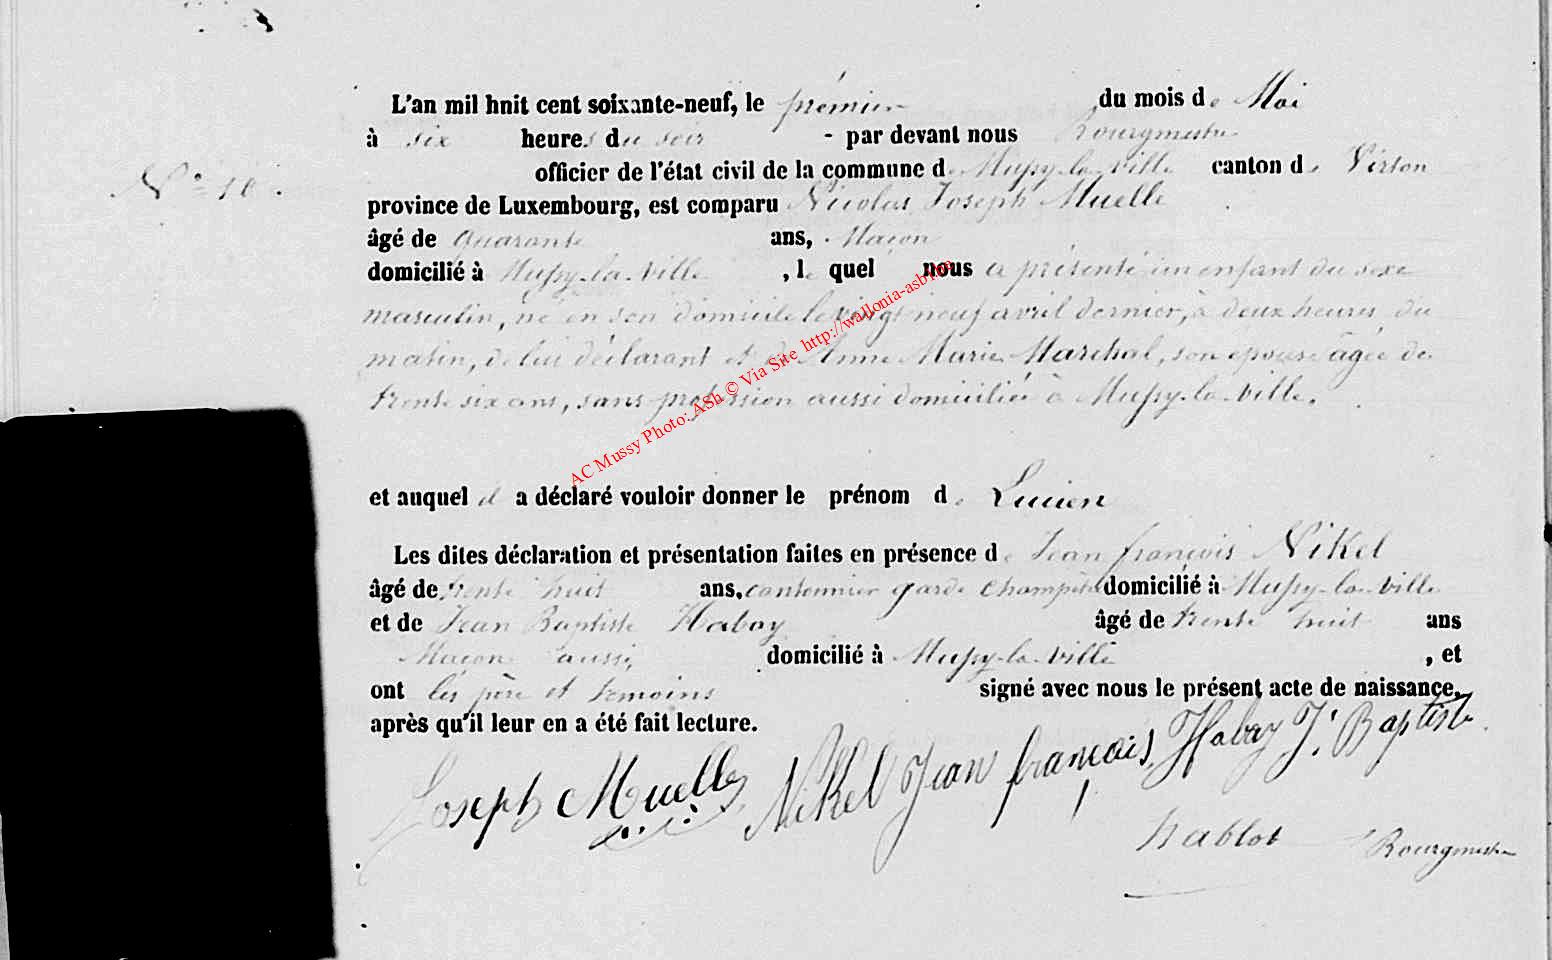 L'an mil huit cent soixante-neuf, le prémier du mois de Mai
à six heures du soir - par devant nous Bourgmestre
N° 10. officier de l'état civil de la commune de Mussy-la-ville canton de Virton
province de Luxembourg, est comparu Nicolas Joseph Muelle
âgé de quarante ans, Maçon
domicilié à Mussy-la-ville, le quel nous a présenté un enfant du sexe
masculin, né en son domicile le vingt neuf avril dernier, à deux heures du
matin, de lui déclarant et de Anne Marie Marchal, son épouse âgée de
trente six ans, sans profession aussi domiciliée à Mussy-la-ville.
et auquel il a déclaré vouloir donner le prénom de Lucien
Les dites déclaration et présentation faites en présence de Jean françois Nikel
âgé de trente huit ans, cantonnier garde champêtre domicilié à Mussy-la-ville
et de Jean Baptiste Habay âgé de trente huit ans
Maçon aussi, domicilié à Mussy-la-ville, et
ont les père et témoins signé avec nous le présent acte de naissance,
après qu'il leur en a été fait lecture.
Joseph Muelle Nikel Jean françois Habay J. Baptiste
hablot Bourgmestre
AC Mussy Photo: ASh © Via Site http://wallonia-asbl.be